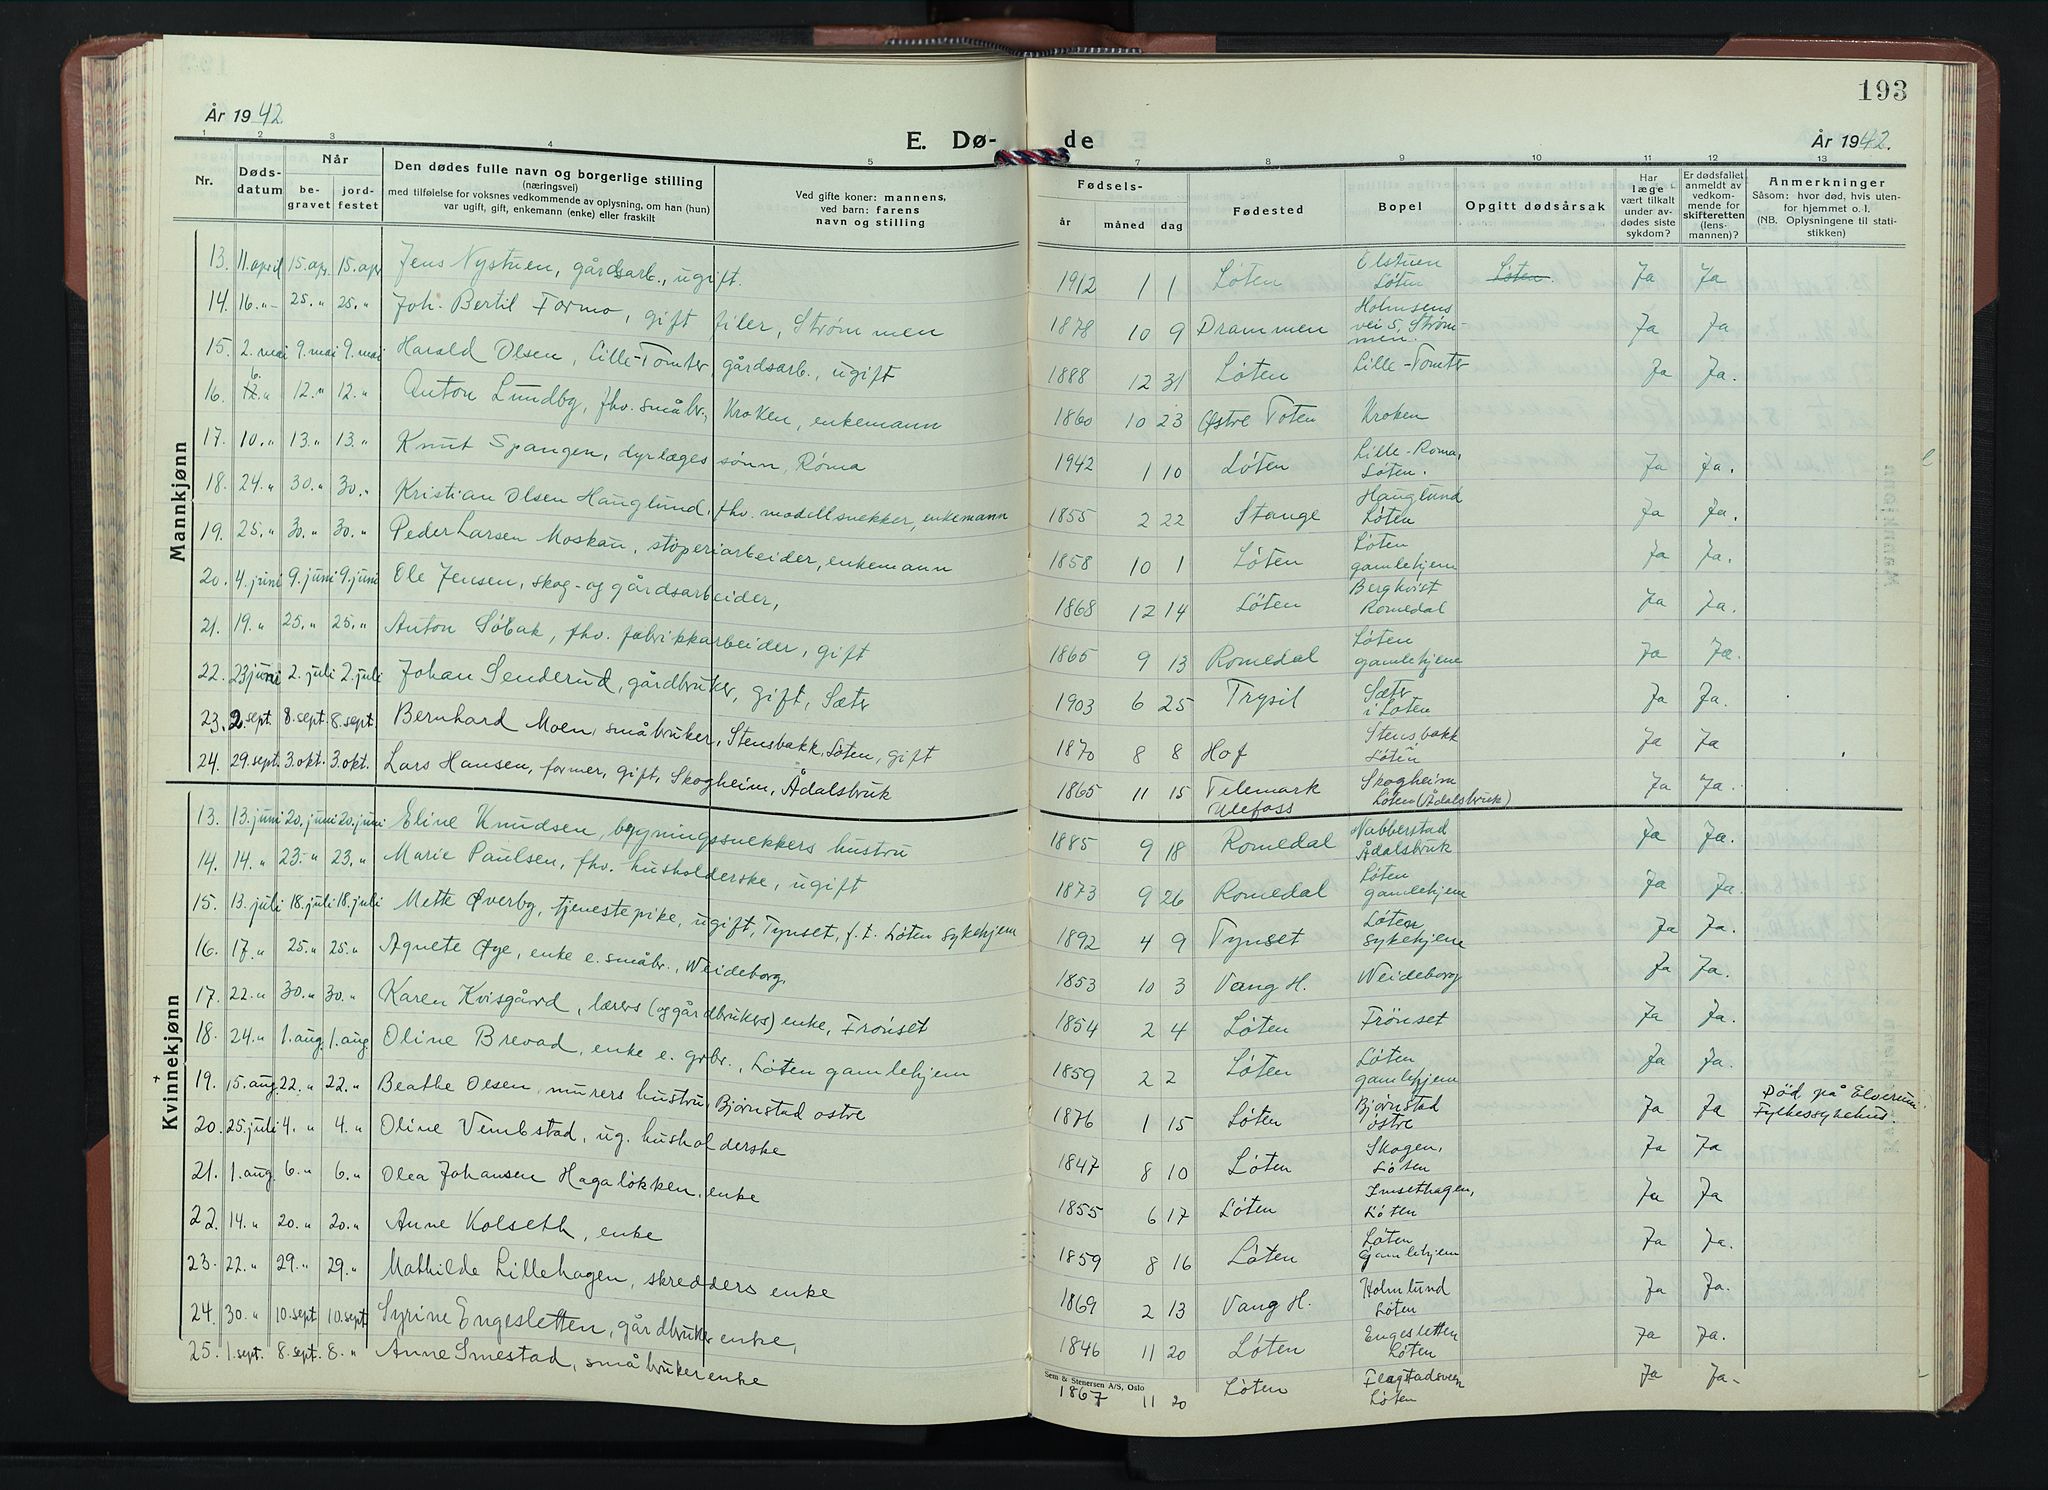 193
År 1942
År 1942.
E. Dø- de
1 2 3 4 5 7 8 9 10 11 12 13
Nr. Døds-datum Når be-gravet jord-festet Den dødes fulle navn og borgerlige stilling (næringsvei) med tilføielse for voksnes vedkommende av oplysning, om han (hun) var ugift, gift, enkemann (enke) eller fraskilt Ved gifte koner: mannens, ved barn: farens navn og stilling Fødsels- år måned dag Fødested Bopel Opgitt dødsårsak Har læge vært tilkalt under av-dødes siste sykdom? Er dødsfallet anmeldt av vedkom-mende for skifteretten (lens-mannen)? Anmerkninger Såsom: hvor død, hvis uten-for hjemmet o. l. (NB. Oplysningene til stati-stikken)
Mannkjønn
13. 11. april 15. apr. 15. apr. Jens Nystuen, gårdsarb., ugift. 1912 1 1 Løten Elstuen Løten Løten Ja Ja
14. 16. „ 25. „ 25. „ Joh. Bertil Formo, gift filer, Strømmen 1878 10 9 Drammen Holmsens vei 5, Strøm-men. Ja Ja
15. 2. mai 9. mai 9. mai Harald Olsen, Lille-Tomter, gårdsarb., ugift 1888 12 31 Løten Lille-Tomter Ja Ja.
16. 6. „ 12. „ 12. „ Anton Lundby, fhv. småbr., Kroken, enkemann 1860 10 23 Østre Toten Kroken
17. 10. „ 13. „ 13. „ Knut Spangen, dyrlæges sønn, Røma 1942 1 10 Løten Lille-Roma, Løten. Ja Ja.
18. 24. „ 30. „ 30. „ Kristian Olsen Hauglund, fhv. modellsnekker, enkemann 1855 2 22 Stange Hauglund Løten Ja Ja.
19. 25. „ 30. „ 30. „ Peder Larsen Moskau, støperiarbeider, enkemann 1858 10 1 Løten Løten gamlehjem Ja Ja.
20. 4. juni 9. juni 9. juni Ole Jensen, skog- og gårdsarbeider, 1868 12 14 Løten Bergkvist Romedal Ja Ja.
21. 19. „ 25. „ 25. „ Anton Søbak, fhv. fabrikkarbeider, gift 1865 9 13 Romedal Løten gamlehjem Ja Ja.
22. 23 juni 2. juli 2. juli Johan Senderud, gårdbruker, gift, Sæter 1903 6 25 Trysil Sæter i Løten Ja Ja.
23. 2. sept. 8. sept. 8. sept. Bernhard Moen, småbruker, Stensbakk, Løten, gift 1870 8 8 Hof Stensbakk Løten Ja Ja
24. 29. sept. 3. okt. 3. okt. Lars Hansen, former, gift, Skogheim, Ådalsbruk 1865 11 15 Telemark Ulefoss Skogheim Løten (Ådalsbruk) Ja Ja.
Kvinnekjønn
13. 13. juni 20. juni 20. juni Eline Knudsen, bygningssnekkers hustru 1885 9 18 Romedal Nabberstad Ådalsbruk Ja Ja.
14. 14. „ 23. „ 23. „ Marie Paulsen, fhv. husholderske, ugift 1873 9 26 Romedal Løten gamlehjem Ja Ja.
15. 13. juli 18. juli 18. juli Mette Øverby, tjenestepike, ugift, Tynset, f. t. Løten sykehjem 1892 4 9 Tynset Løten sykehjem Ja Ja.
16. 17. „ 25. „ 25. „ Agnete Øye, enke e. småbr., Weideborg, 1853 10 3 Vang H. Weideborg Ja Ja.
17. 22. „ 30. „ 30. „ Karen Kvisgård, lærers (og gårdbrukers) enke, Frønset 1854 2 4 Løten Frönset Ja Ja.
18. 24. „ 1. aug. 1. aug. Oline Brevad, enke e. grbr., Løten gamlehjem 1859 2 2 Løten Løten gamlehjem Ja Ja.
+ 19. 15. aug. 22. „ 22. „ Beathe Olsen, murers hustru, Bjørnstad østre 1876 1 15 Løten Bjørnstad østre Ja Ja Død på Elverum Fylkessykehus.
20. 25. juli 4. „ 4. „ Oline Vembstad, ug. husholderske 1847 8 10 Løten Skogen, Løten Ja Ja
21. 1. aug. 6. „ 6. „ Olea Johansen Hagaløkken, enke 1855 6 17 Løten Imsethagen, Løten Ja Ja
22. 14. „ 20. „ 20. „ Anne Kolseth, enke 1859 8 16 Løten Løten Gamlehjem Ja Ja.
23. 22. „ 29. „ 29. „ Mathilde Lillehagen, skredders enke 1869 2 13 Vang H. Holmlund Løten Ja Ja.
24. 30. „ 10. sept. 10. sept. Syrine Engesletten, gårdbruker enke, 1846 11 20 Løten Engesletten Løten Ja Ja.
25. 1. sept. 8. sept. 8. „ Anne Smestad, småbrukerenke 1867 11 20 Løten Flagstadsveen Løten Ja Ja
Sem & Stenersen A/S, Oslo